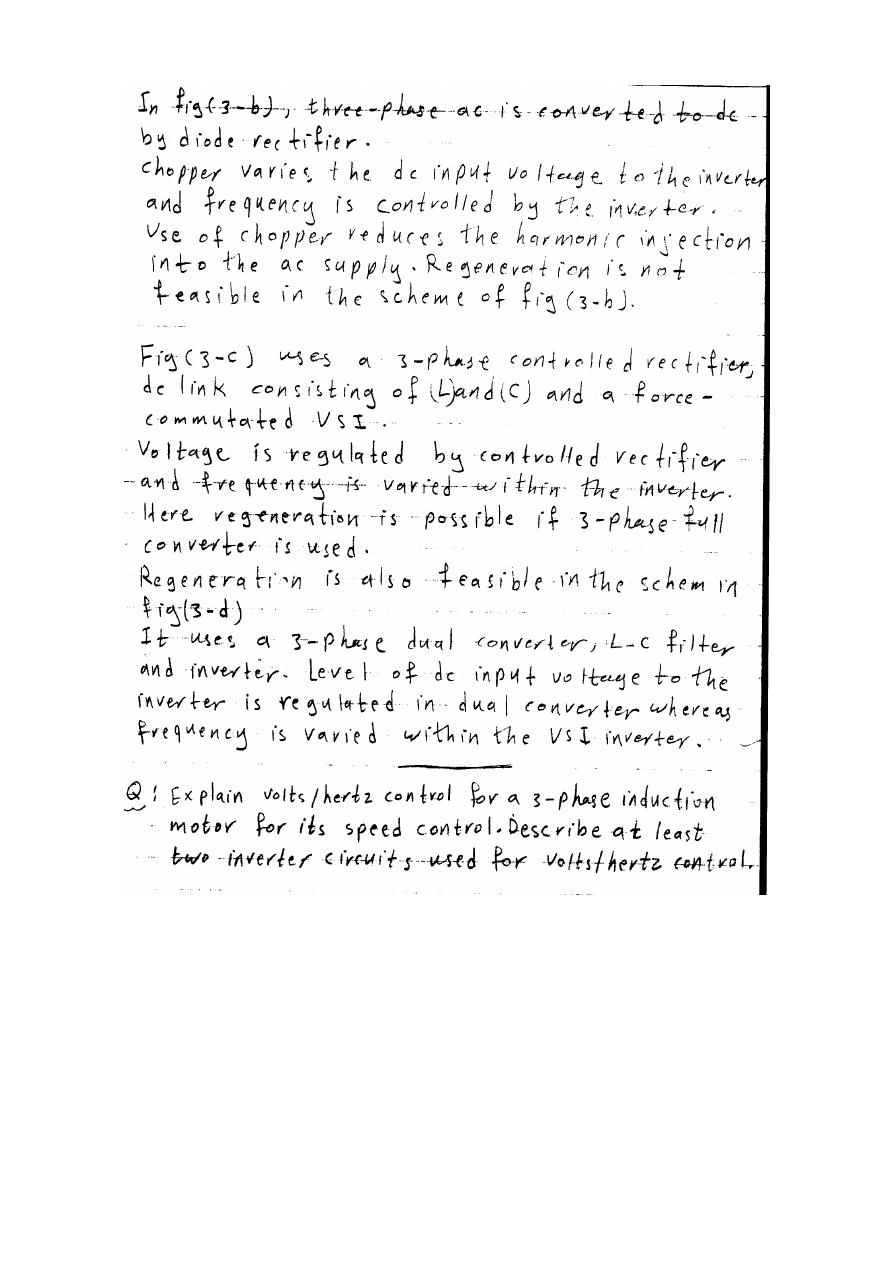 In fig(3-b), three-phase ac is converted to dc
by diode rectifier.
chopper varies the dc input voltage to the inverter
and frequency is controlled by the inverter.
Use of chopper reduces the harmonic injection
into the ac supply. Regeneration is not
feasible in the scheme of fig (3-b).
Fig(3-c) uses a 3-phase controlled rectifier,
dc link consisting of (L)and(C) and a force-
commutated VSI.
Voltage is regulated by controlled rectifier
and frequency is varied within the inverter.
Here regeneration is possible if 3-phase full
converter is used.
Regeneration is also feasible in the schem in
fig(3-d)
It uses a 3-phase dual converter, L-C filter
and inverter. Level of dc input voltage to the
inverter is regulated in dual converter whereas
frequency is varied within the VSI inverter.
Q: Explain volts/hertz control for a 3-phase induction
motor for its speed control. Describe at least
two inverter circuits used for volts/hertz control.